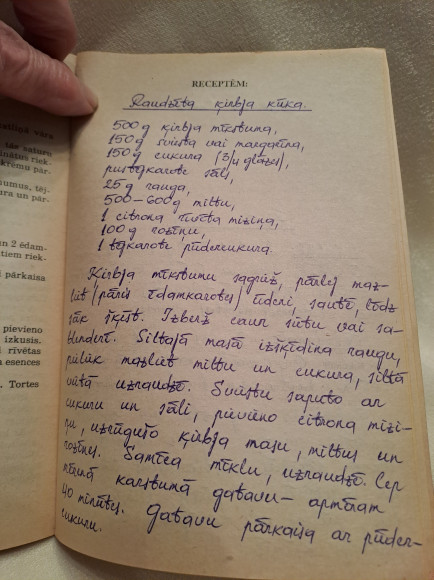 katliņā vāra
tās saturu
krēmu pār-
2 ēdam-
pārkaisa
pievieno
izkusis.
rīvētas
esences
Tortes
RECEPTĒM:
Raudzēta ķirbja kūka.
500 g ķirbja mīkstuma,
150 g sviesta vai margarīna,
150 g cukura (3/4 glāzes),
pustējkarote sāls,
25 g rauga,
500–600 g miltu,
1 citrona rīvēta miziņa,
100 g rozīņu,
1 tējkarote pūdercukura.
Ķirbja mīkstumu sagriež, pārlej maz-
liet (pāris ēdamkarotes) ūdeni, sautē, līdz
sāk šķīst. Izberž caur sietu vai sa-
blenderē. Siltajā masā izšķīdina raugu,
pieliek mazliet miltu un cukura, siltā
vietā uzraudzē. Sviestu saputo ar
cukuru un sāli, pievieno citrona mizi-
ņu, uzrūgušo ķirbja masu, miltus un
rozīnes. Samīca mīklu, uzraudzē. Cep
karstumā gatavu – apmēram
40 minūtes. Gatavu pārkaisa ar pūder-
cukuru.